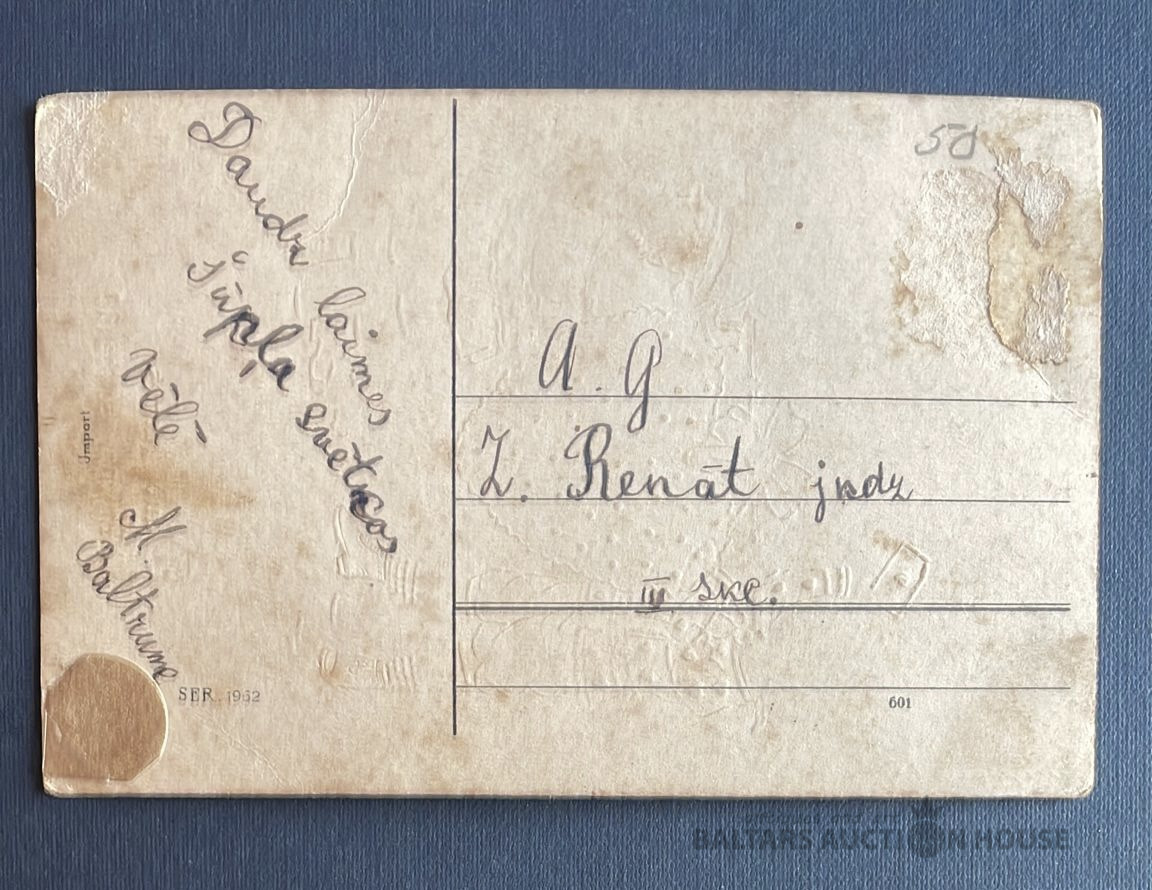 Daudz laimes
Jūpļa svētkos
vēlē
M.
Baltrume
Import
SER. 1962
50
A. G
Z. Renāt jndz
III skc.
601
BALTARS AUCTION HOUSE